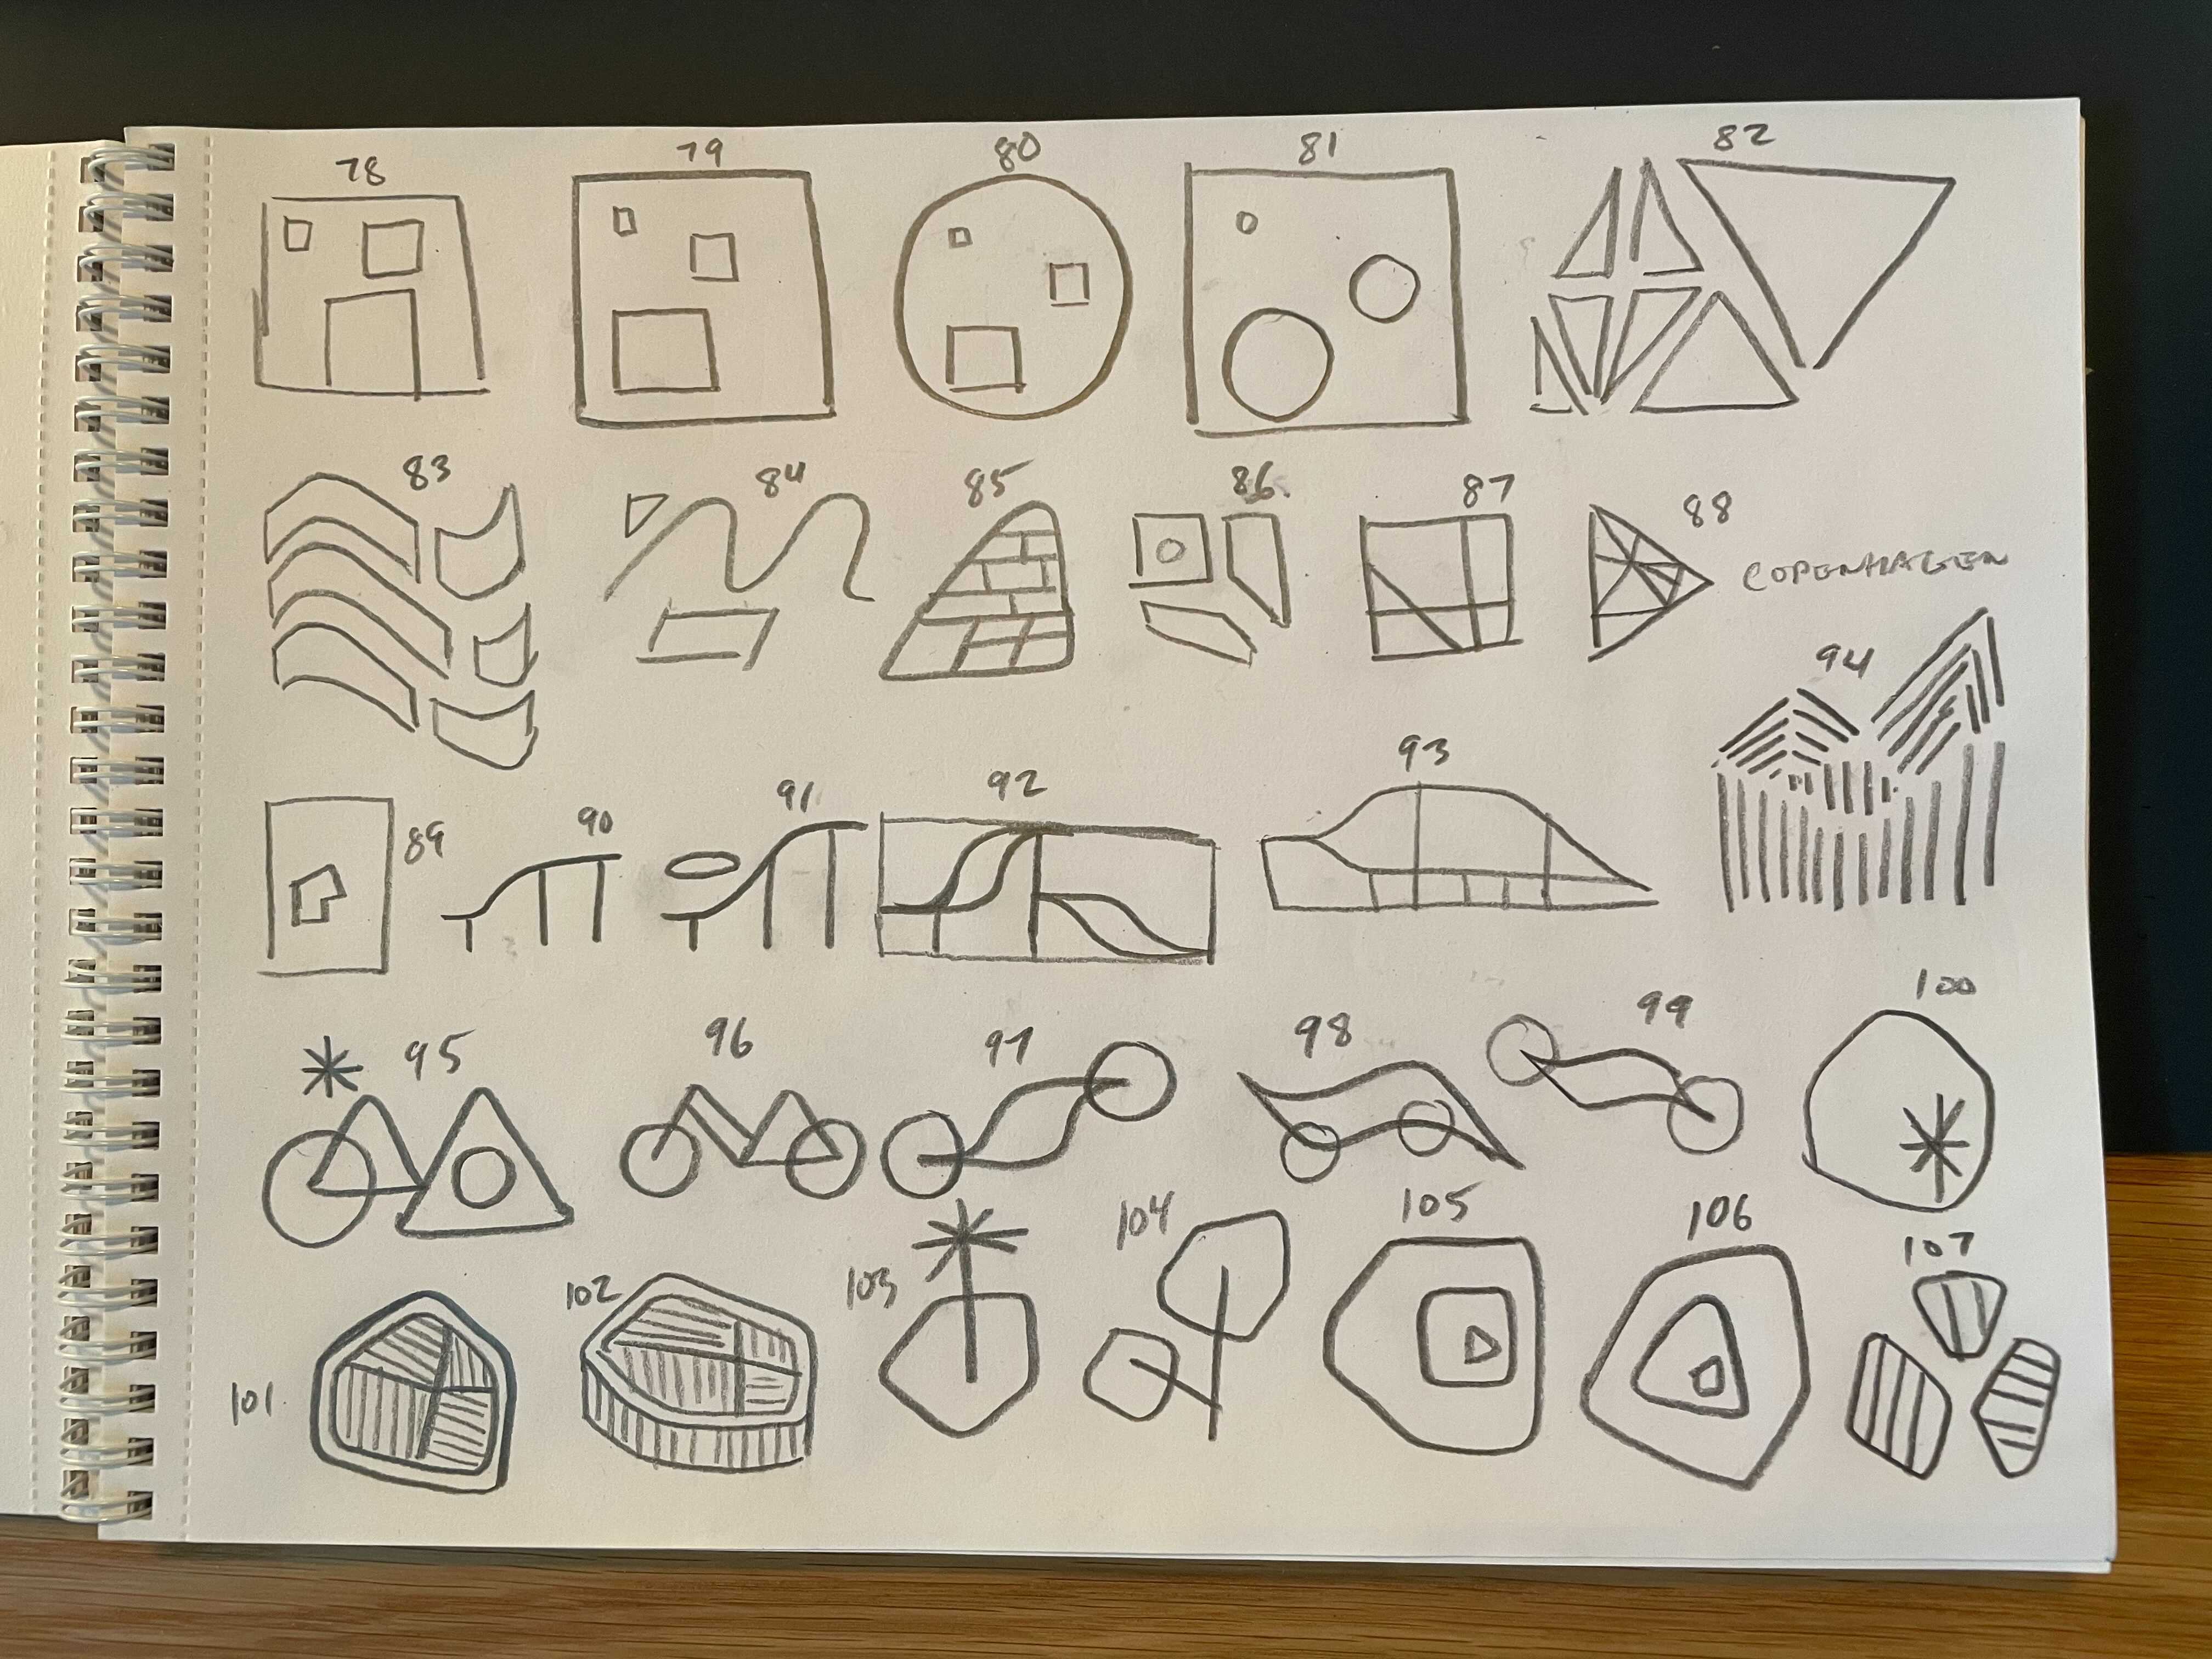 78 79 80 81 82
83 84 85 86 87 88
COPENHAGEN
94
89 90 91 92 93
95 96 97 98 99 100
101 102 103 104 105 106 107